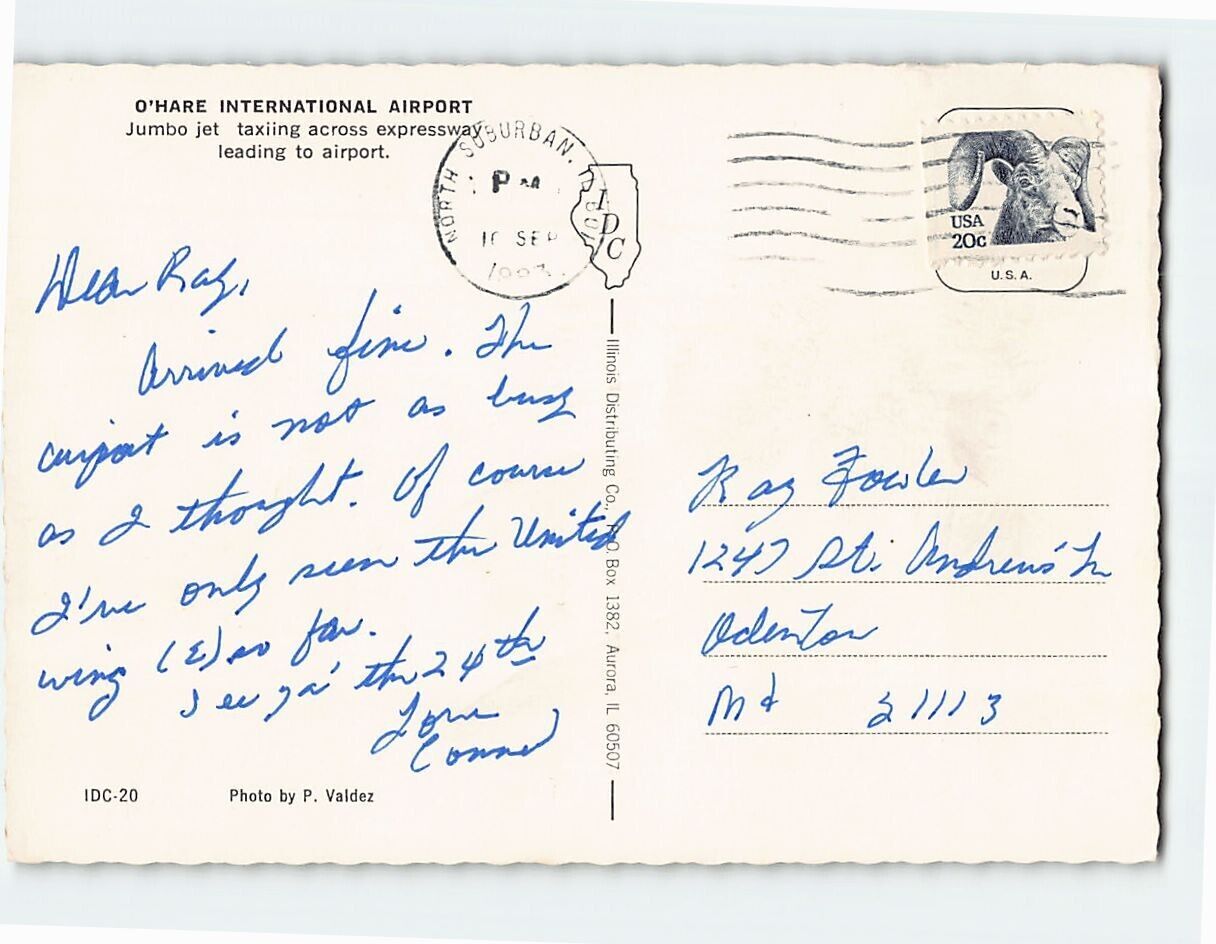 O'HARE INTERNATIONAL AIRPORT
Jumbo jet taxiing across expressway
leading to airport.
NORTH SUBURBAN, IL
PM
SEP
IDC
USA
20c
U.S.A.
Dear Ray,
Arrived fine. The
airport is not as busy
as I thought. Of course
I've only seen the United
wing (E) so far.
See ya' the 24th
Love
Illinois Distributing Co., P.O. Box 1382, Aurora, IL 60507
Ray Fowler
1247 St. Andrews Ln
Odenton
Md 21113
IDC-20 Photo by P. Valdez